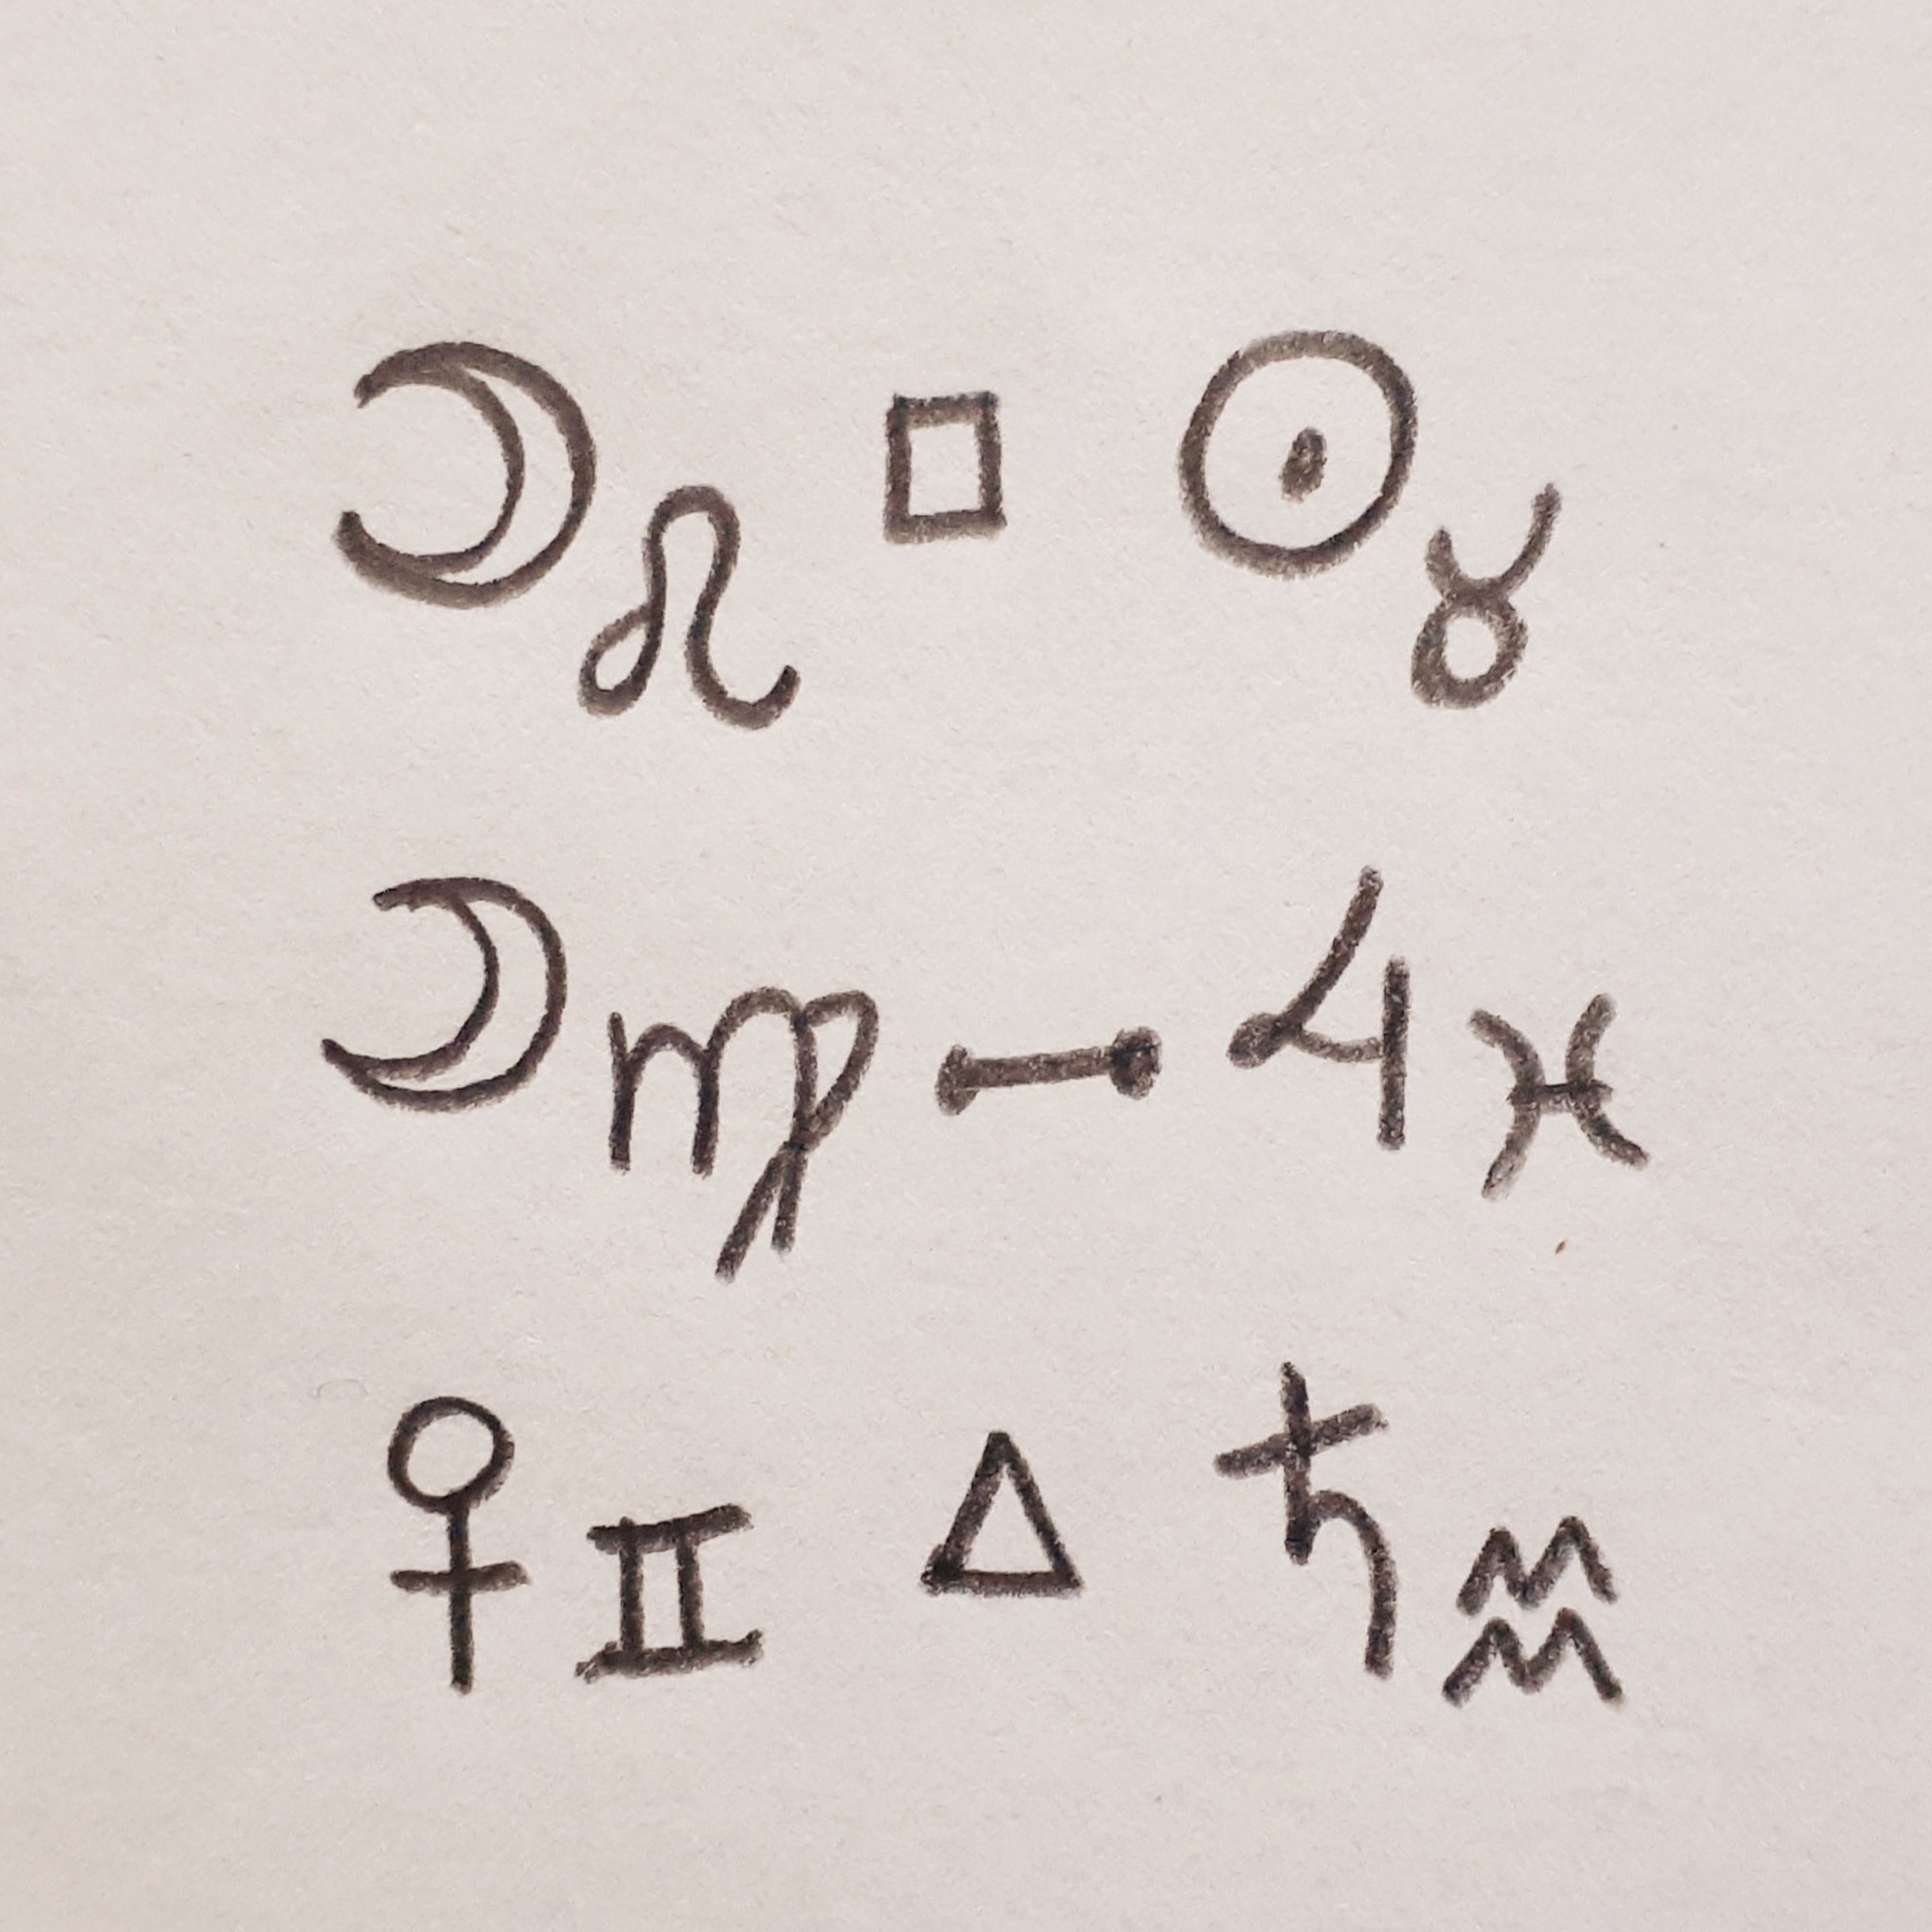 ☽♌ □ ☉♉
☽♍ ☍ ♃♓
♀♊ △ ♄♒